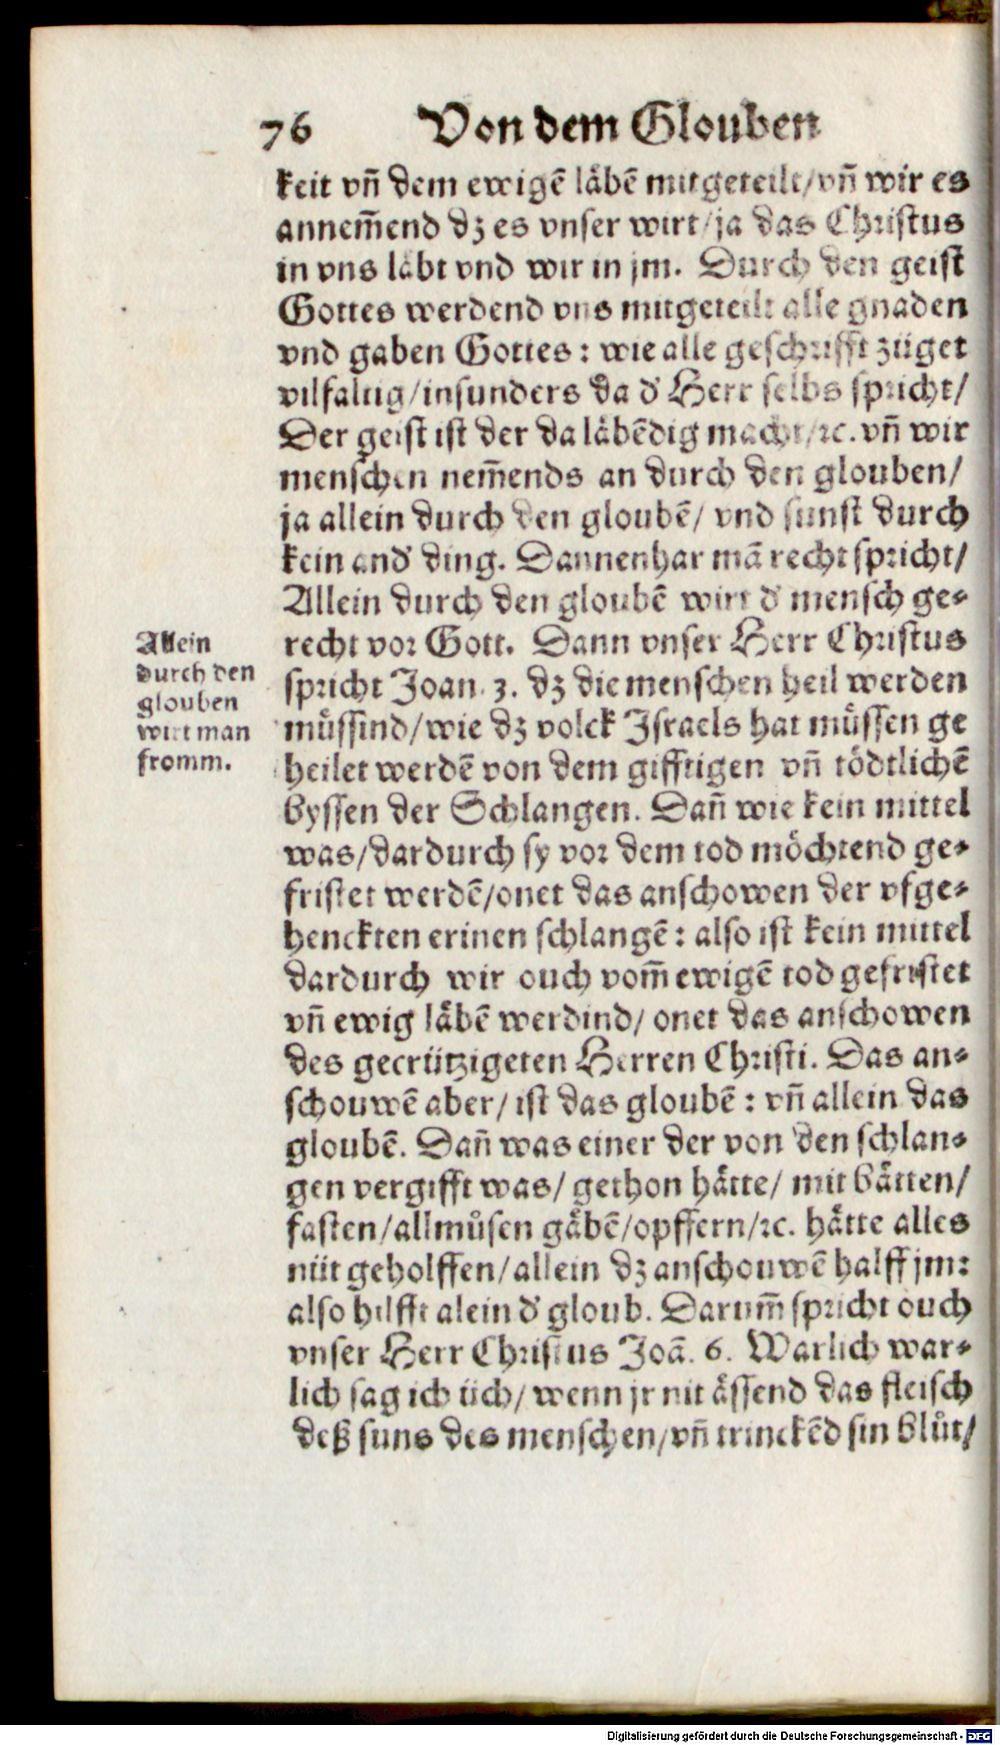 76 Von dem Glouben
keit vñ dem ewigē läbē mitgeteilt/vñ wir es
annem̃end dz es vnser wirt/ja das Christus
in vns läbt vnd wir in jm. Durch den geist
Gottes werdend vns mitgeteilt alle gnaden
vnd gaben Gottes: wie alle geschrifft züget
vilfaltig/insunders da d' Herr selbs spricht/
Der geist ist der da läbēdig macht/ꝛc. vñ wir
menschen nem̃ends an durch den glouben/
ja allein durch den gloubē/ vnd sunst durch
kein and' ding. Dannenhar mā recht spricht/
Allein durch den gloubē wirt d' mensch ge⸗
recht vor Gott. Dann vnser Herr Christus
spricht Joan. 3. dz die menschen heil werden
müssind/wie dz volck Israels hat müssen ge
heilet werdē von dem gifftigen vñ tödtlichē
byssen der Schlangen. Dañ wie kein mittel
was/dardurch sy vor dem tod möchtend ge⸗
fristet werdē/onet das anschowen der vfge⸗
henckten erinen schlangē: also ist kein mittel
dardurch wir ouch vom̃ ewigē tod gefristet
vñ ewig läbē werdind/ onet das anschowen
des gecrützigeten Herren Christi. Das an⸗
schouwē aber/ ist das gloubē: vñ allein das
gloubē. Dañ was einer der von den schlan⸗
gen vergifft was/ gethon hätte/ mit bätten/
fasten/allmůsen gäbē/opffern/ꝛc. hätte alles
nüt geholffen/allein dz anschouwē halff jm:
also hilfft alein d' gloub. Darum̃ spricht ouch
vnser Herr Christus Joā. 6. Warlich war⸗
lich sag ich üch/ wenn jr nit ässend das fleisch
deß suns des menschen/vñ trinckēd sin blůt/
Allein
durch den
glouben
wirt man
fromm.
Digitalisierung gefördert durch die Deutsche Forschungsgemeinschaft - DFG